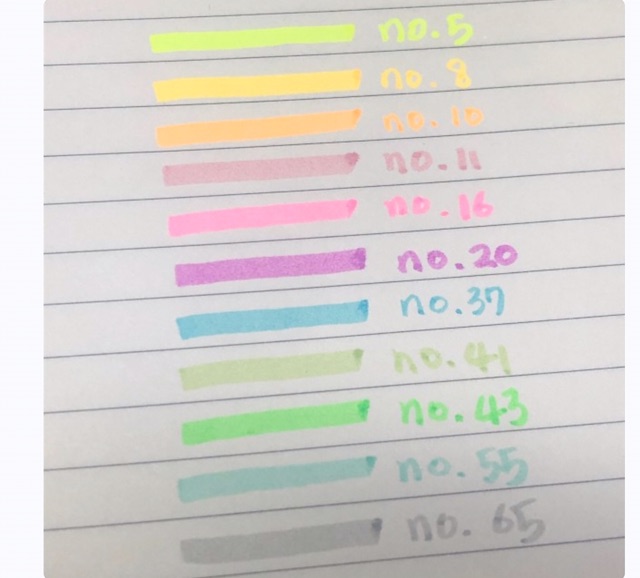 no.5
no.8
no.10
no.11
no.16
no.20
no.37
no.41
no.43
no.55
no.65